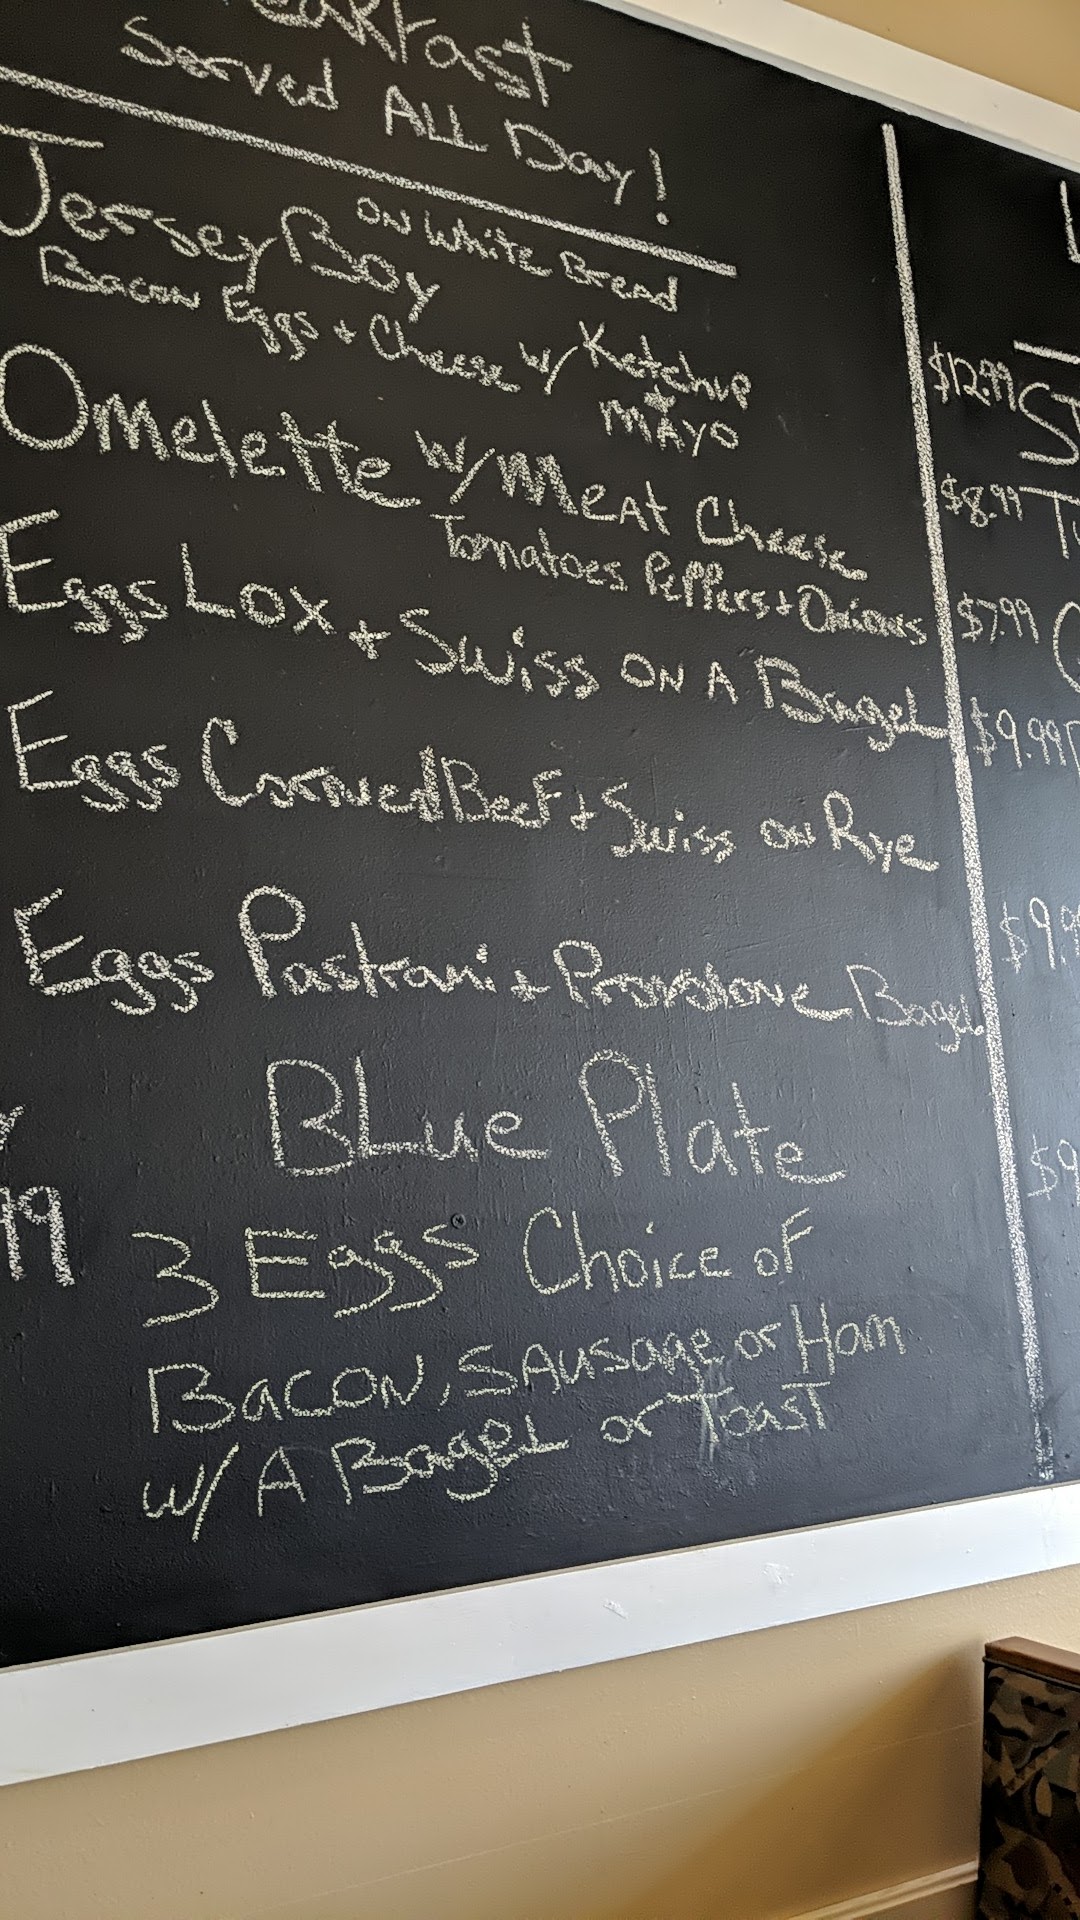 eakfast
Served ALL Day!
Jersey Boy ON White Bread
Bacon Eggs + Cheese w/ Ketchup
+
MAYO
Omelette w/ Meat Cheese
Tomatoes Peppers + Onions
Eggs Lox + Swiss ON A Bagel
Eggs Corned Beef + Swiss on Rye
Eggs Pastrami + Provolone Bagel
BLue Plate
3 Eggs Choice of
Bacon, Sausage or Ham
w/ A Bagel or Toast
$12.99
$8.99
$7.99
$9.99
$9.9
$9
99